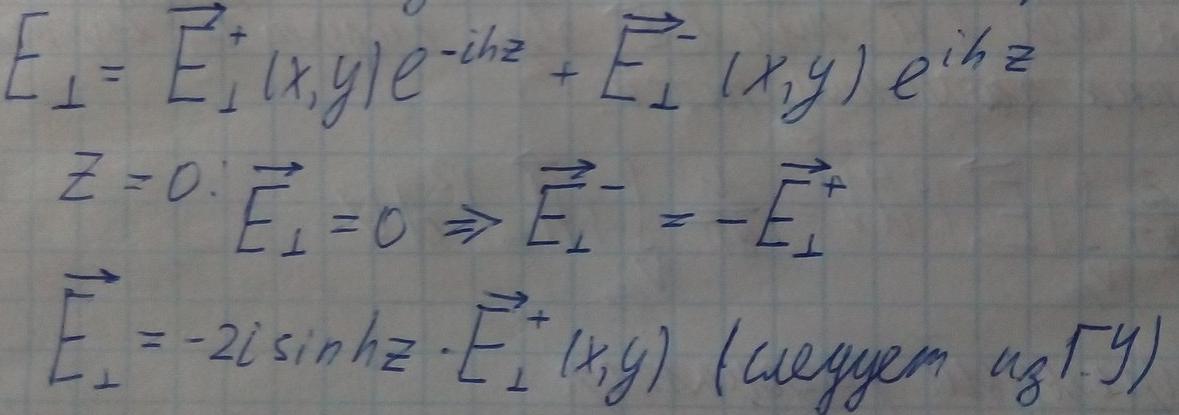 E⊥ = E⃗⊥⁺(x,y)e^{-ihz} + E⃗⊥⁻(x,y) e^{ihz}
z = 0: E⃗⊥ = 0 ⇒ E⃗⊥⁻ = -E⃗⊥⁺
E⃗⊥ = -2i sinhz · E⃗⊥⁺(x,y) (следует из Г.У)